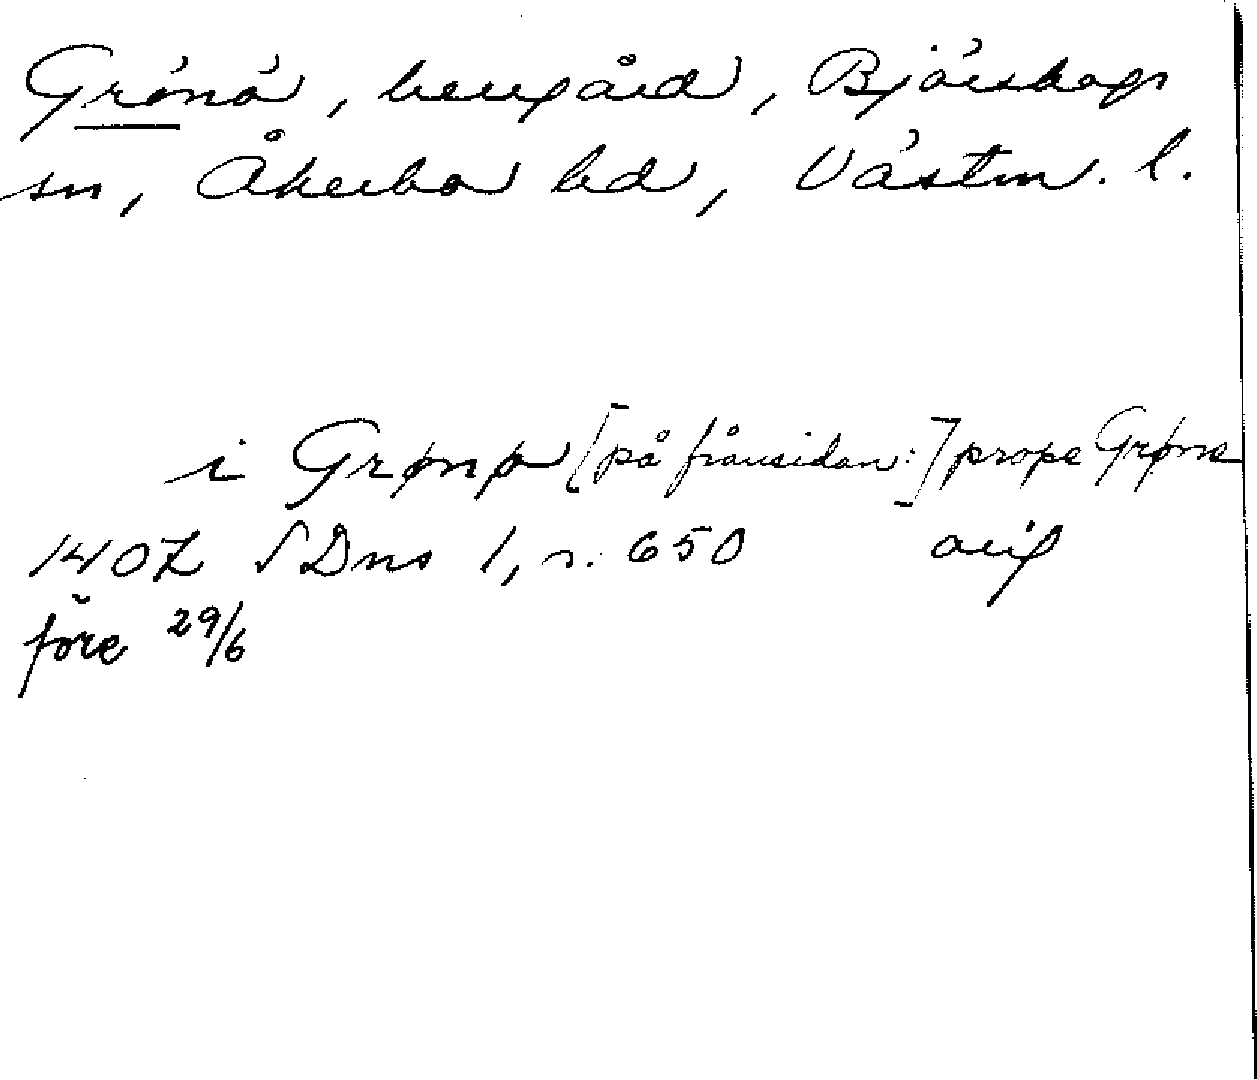 Grönö, herrgård, Björskogs
sn, Åkerbo hd, Västm. l.
i Grønø [på frånsidan:] prope Grønø
1407 SDns 1, n. 650 orig
före 29/6